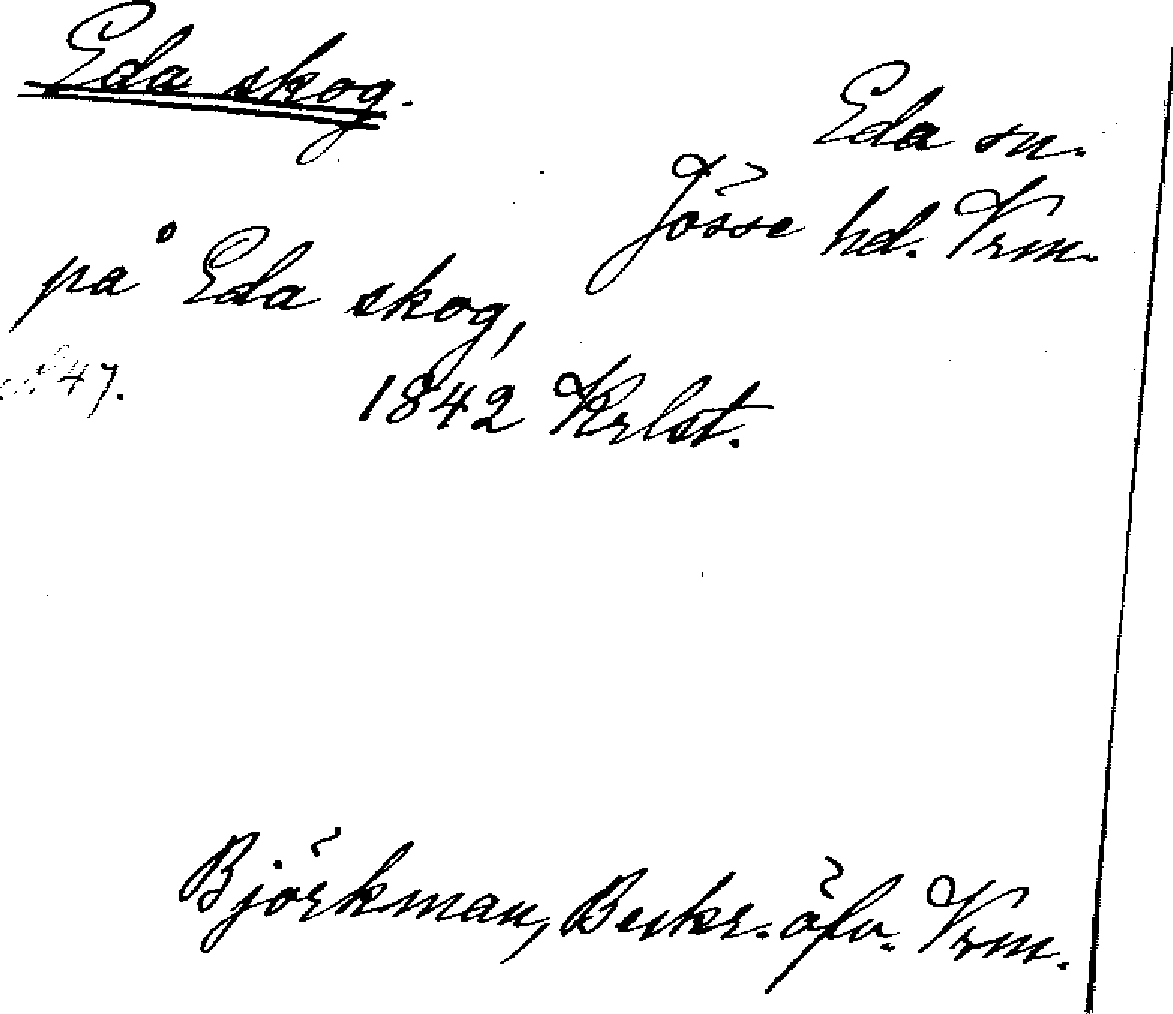 Eda skog.
Eda sn.
Jösse hd. Vrm.
på Eda skog,
47.
1842 Krlst.
Björkman, Beskr. öfv. Vrm.